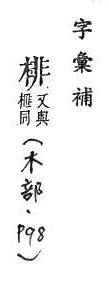 字彙補
棑又與榧同（木部．P98）